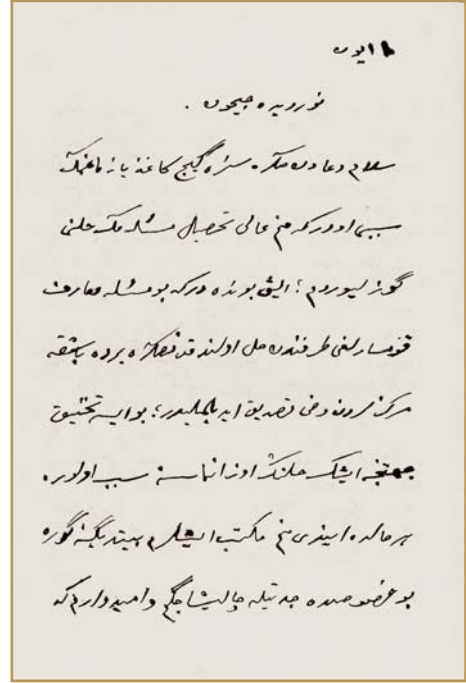 ایون
نور دیده جیحون .
سلام و دعادن صکره سنه گیج کاغذ یازماغمڭ
سببی اودر که من عالی تحصیل مسئله مڭ حلنی
گوزلیوردم ؛ ایش بونده در که بو مسئله معارف
قومسارلغی طرفندن حل اولندقدنصکره برده باشقه
مرکزلردن دخی تصدیق ایدیلملیدر ؛ بو ایسه
ایشڭ حلنڭ اوزانماسنه سبب اولور .
هر حالده ایندی من مکتب ایشلرم بیتدیگنه گوره
بو خصوصده جدیتله چالیشاجگم و امیدوارم که